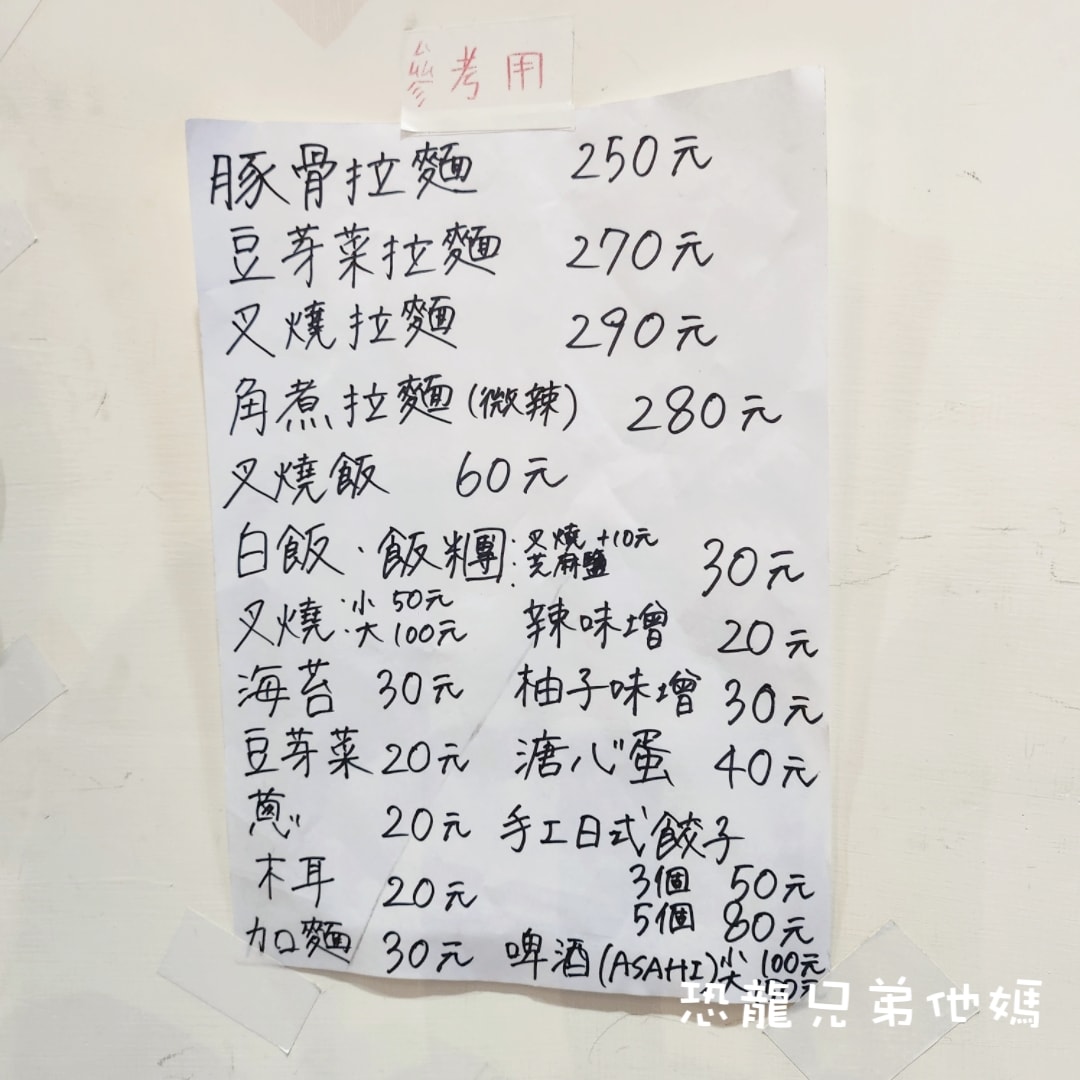 參考用
豚骨拉麵 250元
豆芽菜拉麵 270元
叉燒拉麵 290元
角煮拉麵(微辣) 280元
叉燒飯 60元
白飯·飯糰:叉燒+10元 芝麻鹽 30元
叉燒:小 50元 大 100元
辣味增 20元
海苔 30元 柚子味增 30元
豆芽菜 20元 溏心蛋 40元
蔥 20元 手工日式餃子
3個 50元
木耳 20元
5個 80元
加麵 30元 啤酒(ASAHI)小 100元
大
恐龍兄弟他媽